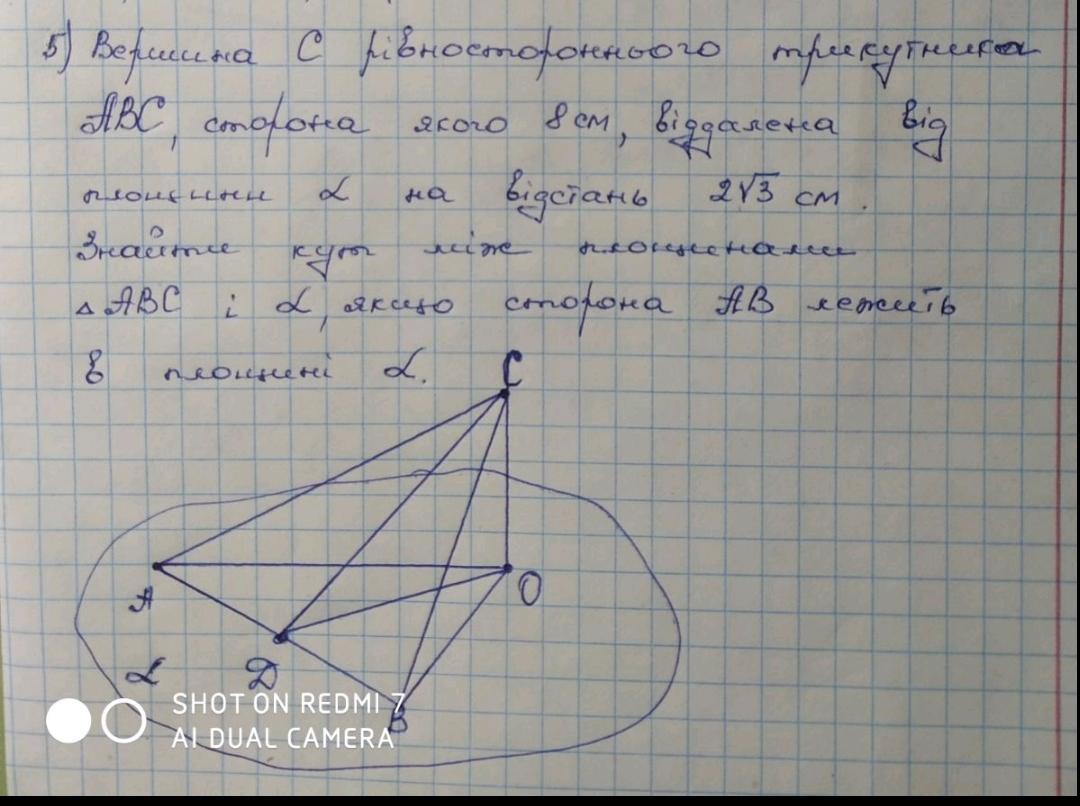 5) Вершина C рівностороннього трикутника
ABC, сторона якого 8 см, віддалена від
площини α на відстань 2√3 см.
Знайти кут між площинами
△ABC і α, якщо сторона AB лежить
в площині α.
C
A
O
α
D
B
SHOT ON REDMI 7
AI DUAL CAMERA